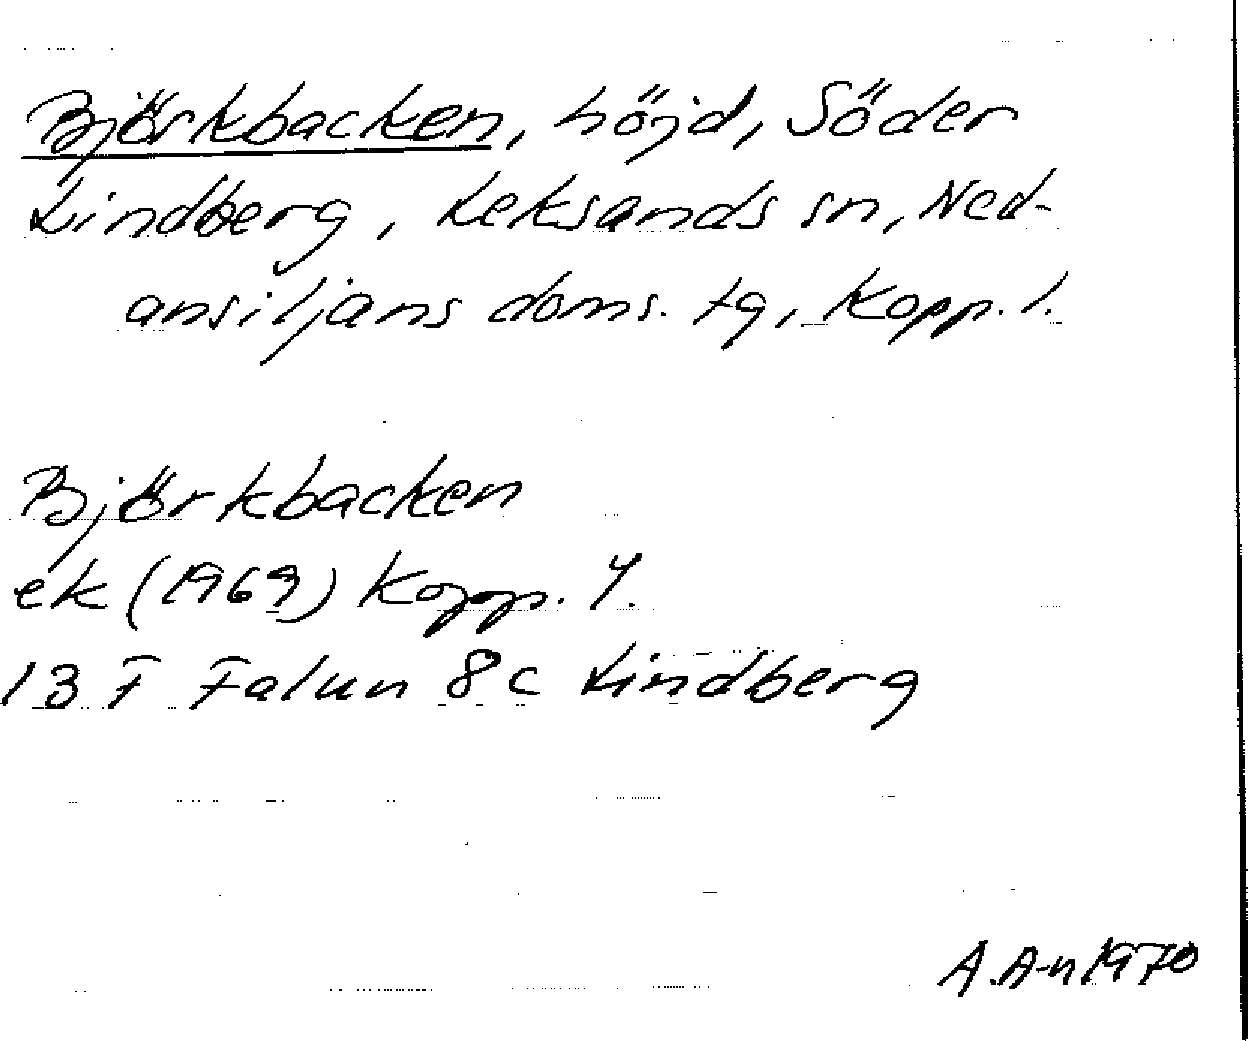 Björkbacken, höjd, Söder
Lindberg, Leksands sn, Ned-
ansiljans doms. tg, Kopp. l.
Björkbacken
ek (1969) Kopp. l.
13 F Falun 8c Lindberg
A. A-n 1970